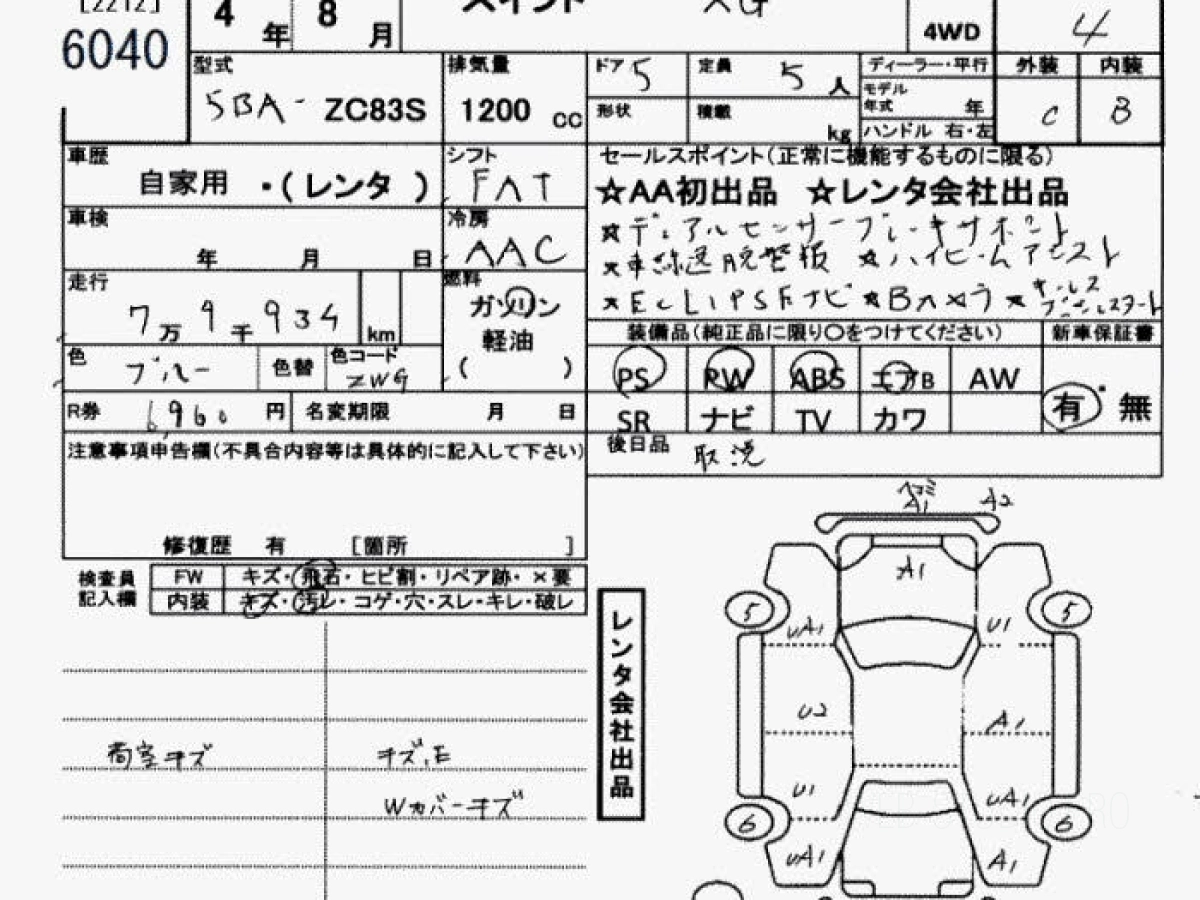 [2212]
6040
4 年 8 月
スイフト XG
4WD
4
型式
5BA- ZC83S
排気量
1200 cc
ドア 5
定員 5 人
形状
積載 kg
ディーラー・平行
モデル年式 年
ハンドル 右・左
外装 内装
C B
車歴
自家用 ・(レンタ)
シフト
FAT
車検
年 月 日
冷房
AAC
走行
7万9千934 km
燃料
ガソリン
軽油
( )
色
ブルー
色替
色コード
ZWG
R券 6,960 円
名変期限 月 日
セールスポイント(正常に機能するものに限る)
☆AA初出品 ☆レンタ会社出品
☆デュアルセンサーブレーキサポート
☆車線逸脱警報 ☆ハイビームアシスト
☆ECLIPSEナビ ☆Bカメラ ☆キーレスプッシュスタート
装備品(純正品に限り〇をつけてください)
新車保証書
PS PW ABS エアB AW
SR ナビ TV カワ
有・無
後日品 取説
注意事項申告欄(不具合内容等は具体的に記入して下さい)
修復歴 有 [箇所 ]
検査員記入欄
FW キズ・飛石・ヒビ割・リペア跡・×要
内装 キズ・汚レ・コゲ・穴・スレ・キレ・破レ
荷室キズ
キズ、E
Wカバーキズ
レンタ会社出品
ヘコミ
A1 A2
A1
5 5
UA1 U1
U2 A1
U1 UA1
6 6
UA1 A1